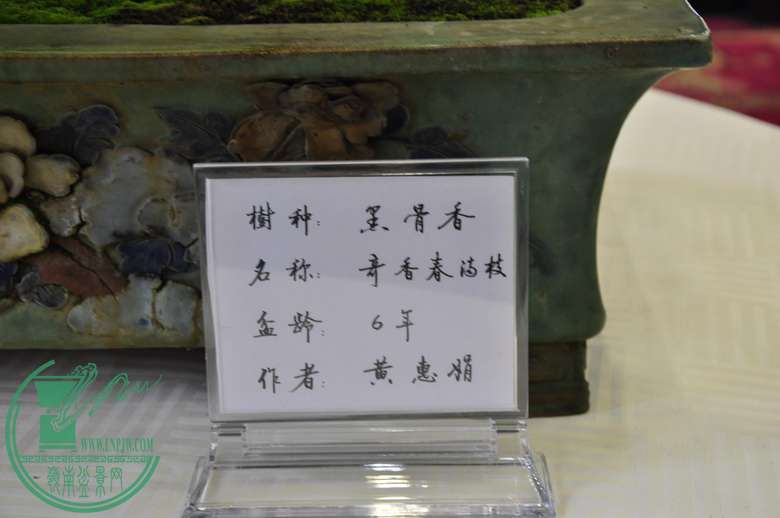 樹种: 黑骨香
名称: 奇香春满枝
盆龄: 6年
作者: 黄惠娟
WWW.LNPJW.COM
嶺南盆景网